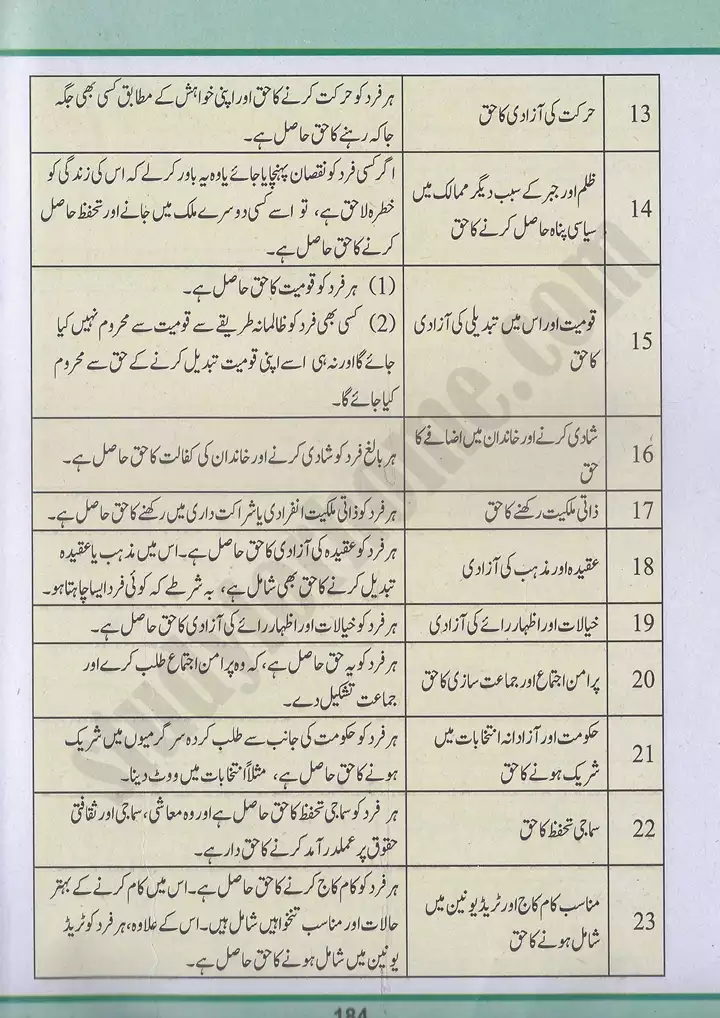 13
حرکت کی آزادی کا حق
ہر فرد کو حرکت کرنے کا حق اور اپنی خواہش کے مطابق کسی بھی جگہ
جا کہ رہنے کا حق حاصل ہے۔
14
ظلم اور جبر کے سبب دیگر ممالک میں
سیاسی پناہ حاصل کرنے کا حق
اگر کسی فرد کو نقصان پہنچایا جائے یا وہ یہ باور کر لے کہ اس کی زندگی کو
خطرہ لاحق ہے، تو اسے کسی دوسرے ملک میں جانے اور تحفظ حاصل
کرنے کا حق حاصل ہے۔
15
قومیت اور اس میں تبدیلی کی آزادی
کا حق
(1) ہر فرد کو قومیت کا حق حاصل ہے۔
(2) کسی بھی فرد کو ظالمانہ طریقے سے قومیت سے محروم نہیں کیا
جائے گا اور نہ ہی اسے اپنی قومیت تبدیل کرنے کے حق سے محروم
کیا جائے گا۔
16
شادی کرنے اور خاندان میں اضافے کا
حق
ہر بالغ فرد کو شادی کرنے اور خاندان کی کفالت کا حق حاصل ہے۔
17
ذاتی ملکیت رکھنے کا حق
ہر فرد کو ذاتی ملکیت انفرادی یا شراکت داری میں رکھنے کا حق حاصل ہے۔
18
عقیدہ اور مذہب کی آزادی
ہر فرد کو عقیدہ کی آزادی کا حق حاصل ہے۔ اس میں مذہب یا عقیدہ
تبدیل کرنے کا حق بھی شامل ہے، بہ شرطے کہ کوئی فرد ایسا چاہتا ہو۔
19
خیالات اور اظہار رائے کی آزادی
ہر فرد کو خیالات اور اظہار رائے کی آزادی کا حق حاصل ہے۔
20
پرامن اجتماع اور جماعت سازی کا حق
ہر فرد کو یہ حق حاصل ہے، کہ وہ پرامن اجتماع طلب کرے اور
جماعت تشکیل دے۔
21
حکومت اور آزادانہ انتخابات میں
شریک ہونے کا حق
ہر فرد کو حکومت کی جانب سے طلب کردہ سرگرمیوں میں شریک
ہونے کا حق حاصل ہے، مثلاً انتخابات میں ووٹ دینا۔
22
سماجی تحفظ کا حق
ہر فرد کو سماجی تحفظ کا حق حاصل ہے اور وہ معاشی، سماجی اور ثقافتی
حقوق پر عملدرآمد کرنے کا حق دار ہے۔
23
مناسب کام کاج اور ٹریڈ یونین میں
شامل ہونے کا حق
ہر فرد کو کام کاج کرنے کا حق حاصل ہے۔ اس میں کام کرنے کے بہتر
حالات اور مناسب تنخواہیں شامل ہیں۔ اس کے علاوہ، ہر فرد کو ٹریڈ
یونین میں شامل ہونے کا حق حاصل ہے۔
184